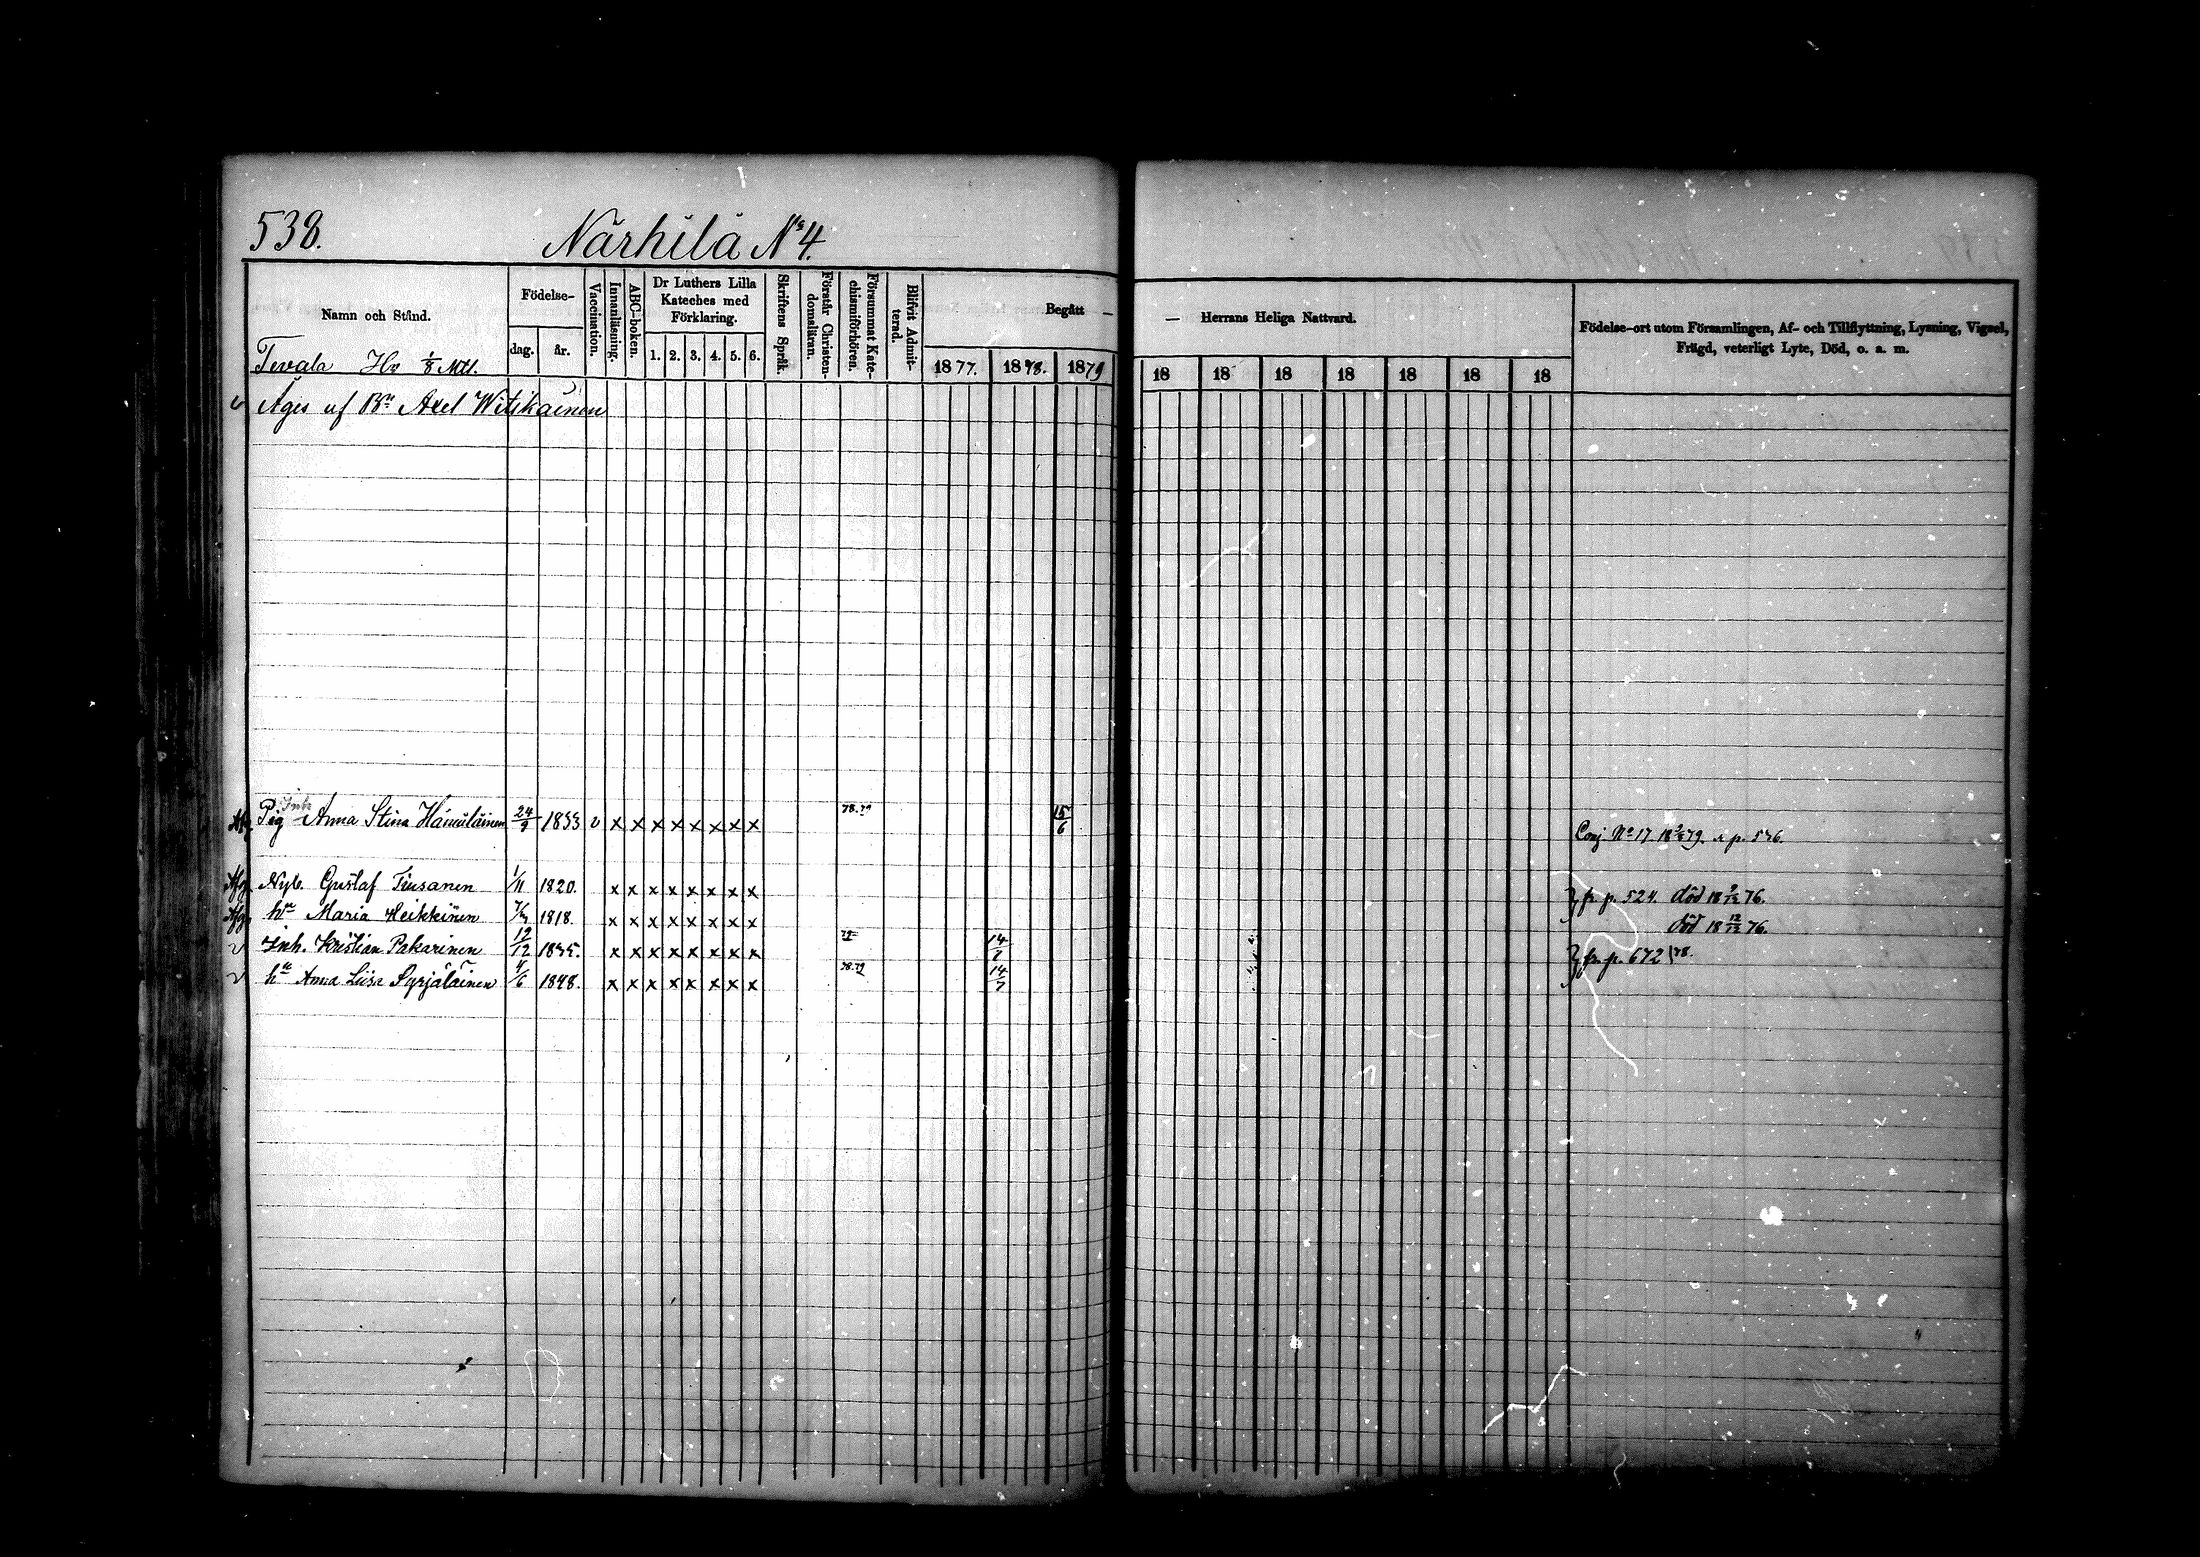 538. Närhilä No 4.
Namn och Stånd. Födelse- dag. år. Vaccination. Innanläsning. ABC-boken. Dr Luthers Lilla Kateches med Förklaring. 1. 2. 3. 4. 5. 6. Skriftens Språk. Förstår Christendomsläran. Försummat Katechismiförhören. Blifvit Admitterad. Begått — 1877. 1878. 1879
— Herrans Heliga Nattvard. 18 18 18 18 18 18 18 Födelse-ort utom Församlingen, Af- och Tillflyttning, Lysning, Vigsel, Frägd, veterligt Lyte, Död, o. a. m.
Tevala Hv 1/8 Mtl.
Äges af Bn Axel Witikainen
Pig Inh Anna Stina Hämäläinen 24/9 1833 v x x x x x x x x 78.79 15/6 Conj. No 17. 79. p. 536.
Afg Nyb. Gustaf Tiusanen 1/11 1820. x x x x x x x x fr. p. 524. död 18 9/12 76.
Afg hu Maria Heikkinen 7/3 1818. x x x x x x x x död 18 12/12 76.
v Inh. Kristian Pakarinen 19/12 1835. x x x x x x x x 79 14/7 fr. p. 672/78.
v hu Anna Liisa Syrjäläinen 4/6 1848. x x x x x x x x 78.79 14/7